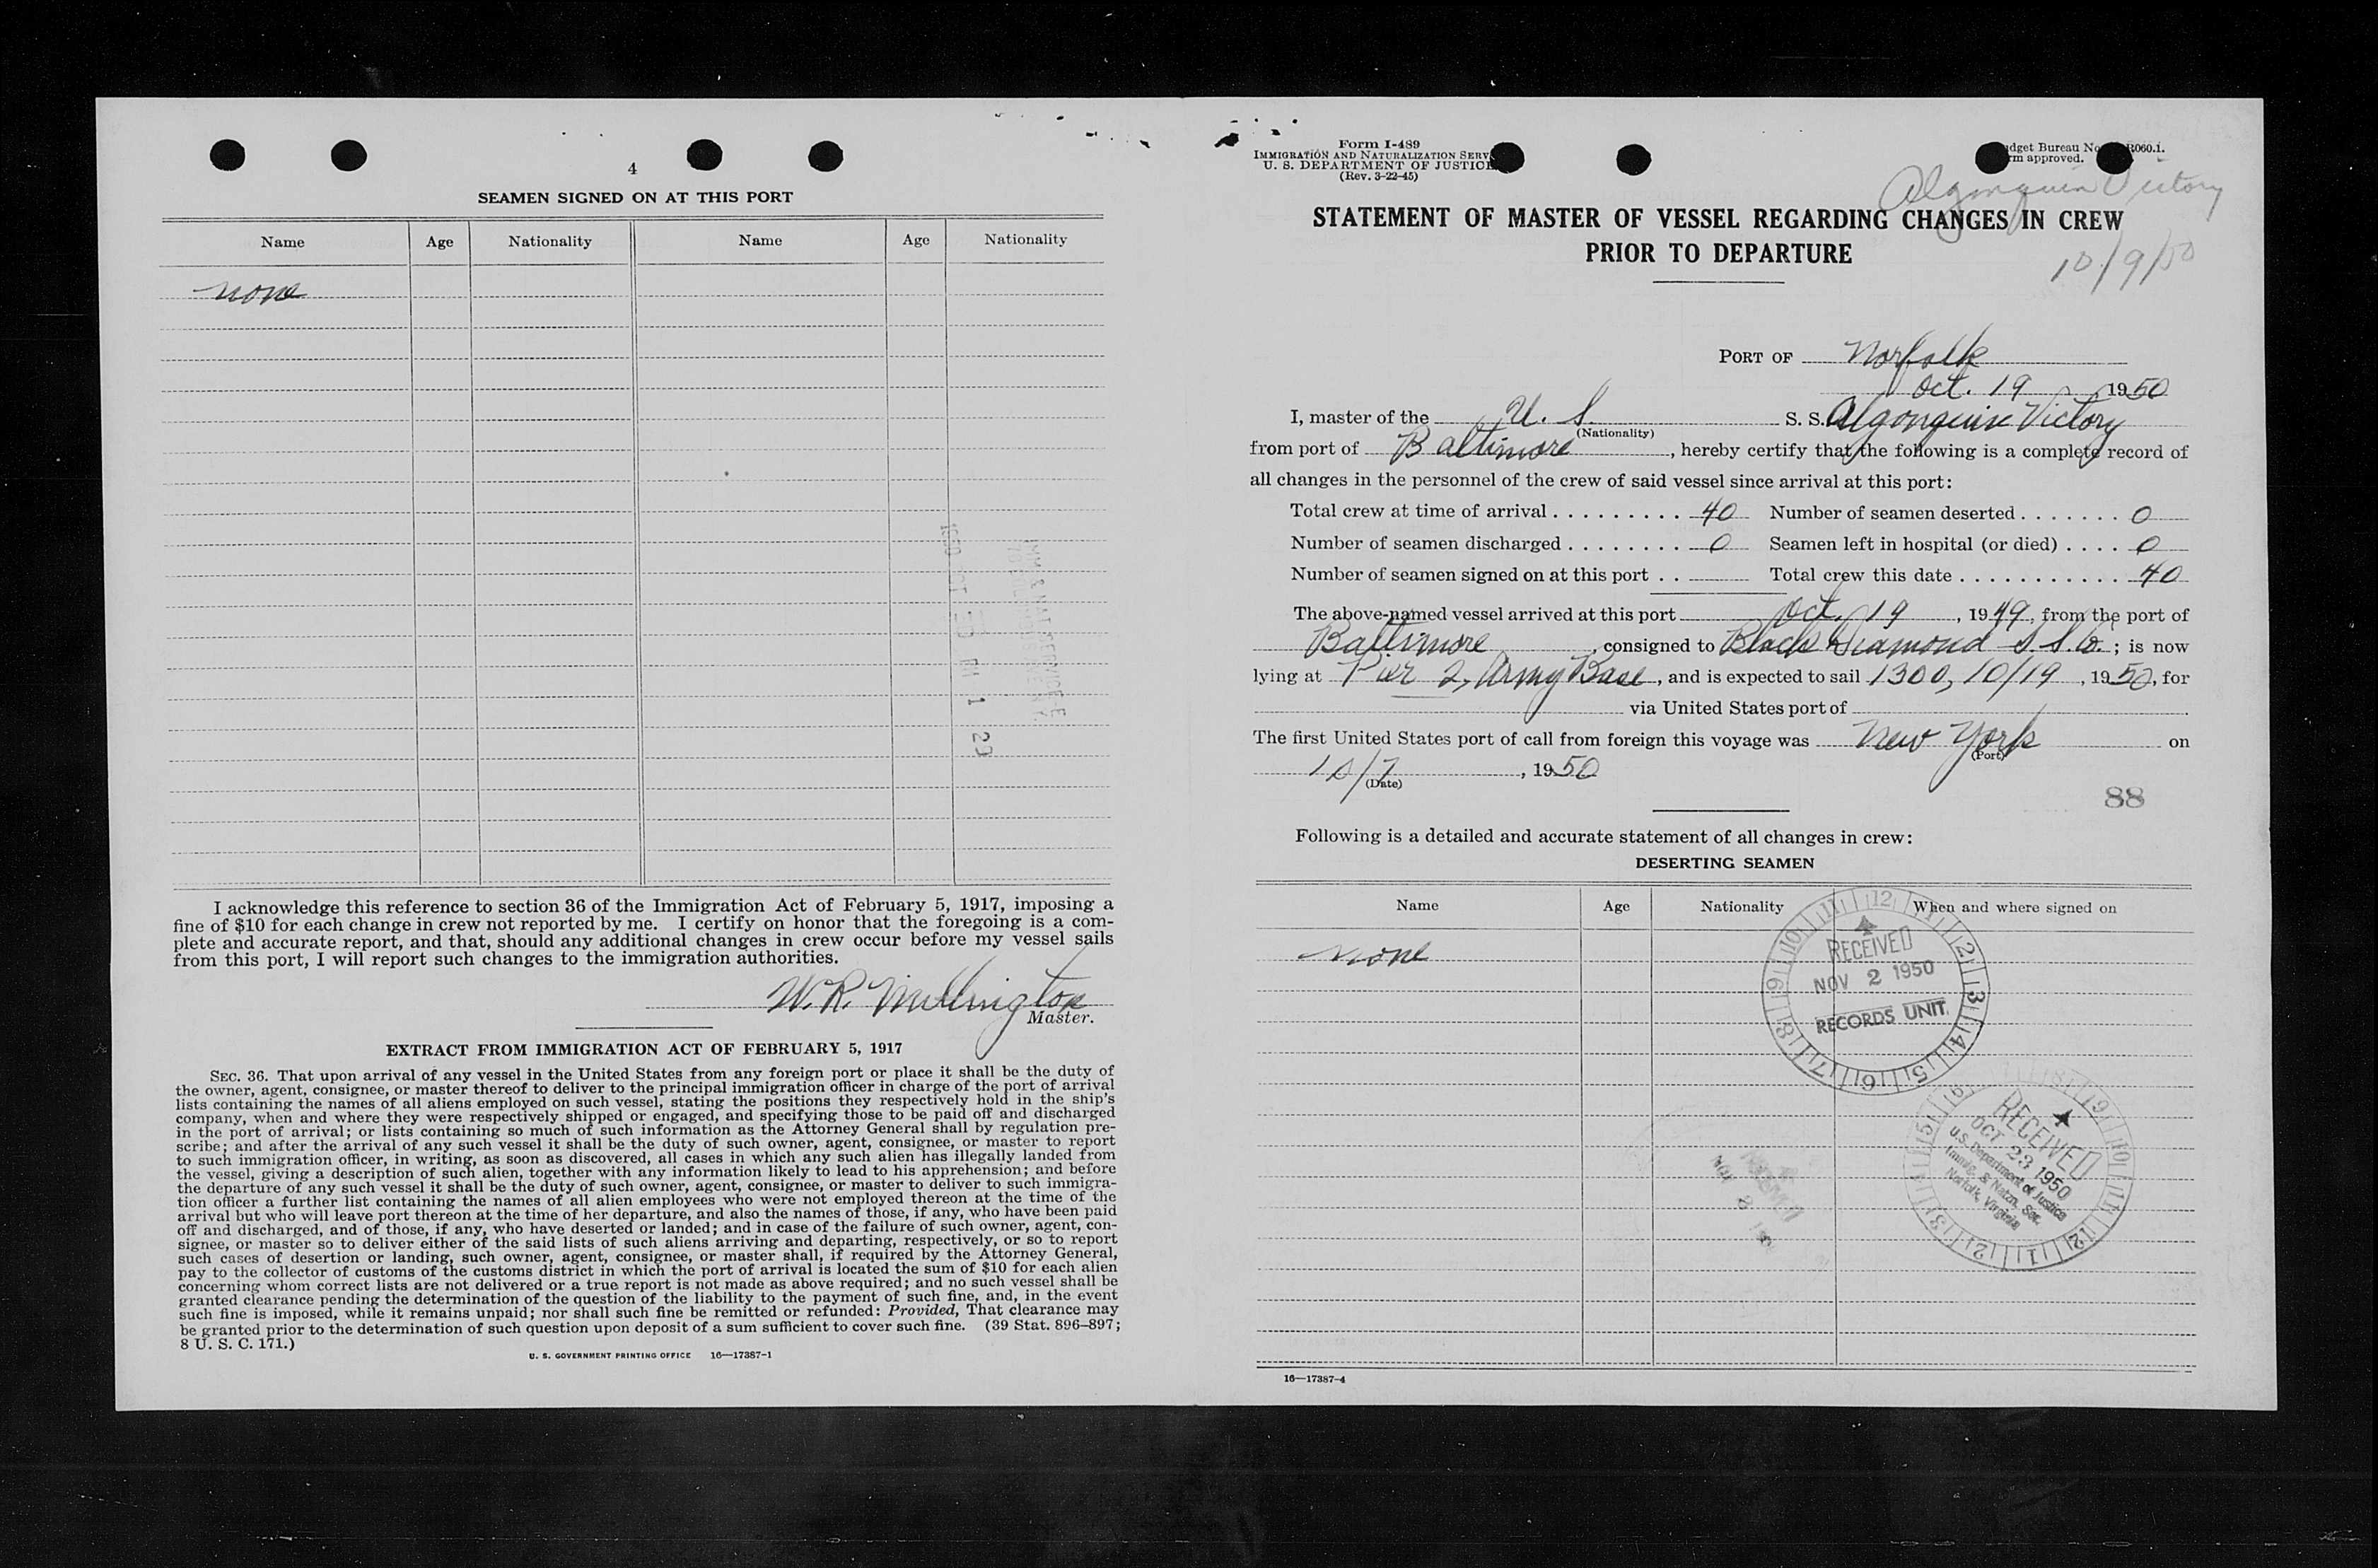 4
SEAMEN SIGNED ON AT THIS PORT
Name Age Nationality Name Age Nationality
none
I acknowledge this reference to section 36 of the Immigration Act of February 5, 1917, imposing a
fine of $10 for each change in crew not reported by me. I certify on honor that the foregoing is a com-
plete and accurate report, and that, should any additional changes in crew occur before my vessel sails
from this port, I will report such changes to the immigration authorities.
W. R. Millington
Master.
EXTRACT FROM IMMIGRATION ACT OF FEBRUARY 5, 1917
SEC. 36. That upon arrival of any vessel in the United States from any foreign port or place it shall be the duty of
the owner, agent, consignee, or master thereof to deliver to the principal immigration officer in charge of the port of arrival
lists containing the names of all aliens employed on such vessel, stating the positions they respectively hold in the ship's
company, when and where they were respectively shipped or engaged, and specifying those to be paid off and discharged
in the port of arrival; or lists containing so much of such information as the Attorney General shall by regulation pre-
scribe; and after the arrival of any such vessel it shall be the duty of such owner, agent, consignee, or master to report
to such immigration officer, in writing, as soon as discovered, all cases in which any such alien has illegally landed from
the vessel, giving a description of such alien, together with any information likely to lead to his apprehension; and before
the departure of any such vessel it shall be the duty of such owner, agent, consignee, or master to deliver to such immigra-
tion officer a further list containing the names of all alien employees who were not employed thereon at the time of the
arrival but who will leave port thereon at the time of her departure, and also the names of those, if any, who have been paid
off and discharged, and of those, if any, who have deserted or landed; and in case of the failure of such owner, agent, con-
signee, or master so to deliver either of the said lists of such aliens arriving and departing, respectively, or so to report
such cases of desertion or landing, such owner, agent, consignee, or master shall, if required by the Attorney General,
pay to the collector of customs of the customs district in which the port of arrival is located the sum of $10 for each alien
concerning whom correct lists are not delivered or a true report is not made as above required; and no such vessel shall be
granted clearance pending the determination of the question of the liability to the payment of such fine, and, in the event
such fine is imposed, while it remains unpaid; nor shall such fine be remitted or refunded: Provided, That clearance may
be granted prior to the determination of such question upon deposit of a sum sufficient to cover such fine. (39 Stat. 896–897;
8 U. S. C. 171.)
U. S. GOVERNMENT PRINTING OFFICE 16—17387-1
Form I-489
IMMIGRATION AND NATURALIZATION SERV
U. S. DEPARTMENT OF JUSTICE
(Rev. 3-22-45)
dget Bureau No. R060.1.
rm approved.
Algonquin Victory
10/9/50
STATEMENT OF MASTER OF VESSEL REGARDING CHANGES IN CREW
PRIOR TO DEPARTURE
PORT OF Norfolk
Oct. 19, 1950
I, master of the U. S. S. S. Algonquin Victory
(Nationality)
from port of Baltimore, hereby certify that the following is a complete record of
all changes in the personnel of the crew of said vessel since arrival at this port:
Total crew at time of arrival . . . . . . . . . 40 Number of seamen deserted . . . . . . . 0
Number of seamen discharged . . . . . . . . 0 Seamen left in hospital (or died) . . . . 0
Number of seamen signed on at this port . . Total crew this date . . . . . . . . . . . . 40
The above-named vessel arrived at this port Oct. 19, 1949, from the port of
Baltimore, consigned to Black Diamond S. S. Co.; is now
lying at Pier 2, Army Base, and is expected to sail 1300, 10/19, 1950, for
via United States port of
The first United States port of call from foreign this voyage was New York on
(Port)
10/7, 1950
(Date)
88
Following is a detailed and accurate statement of all changes in crew:
DESERTING SEAMEN
Name Age Nationality When and where signed on
none
RECEIVED
NOV 2 1950
RECORDS UNIT
RECEIVED
OCT 23 1950
U.S. Department of Justice
Immig. & Natzn. Ser.
Norfolk, Virginia
16—17387-4